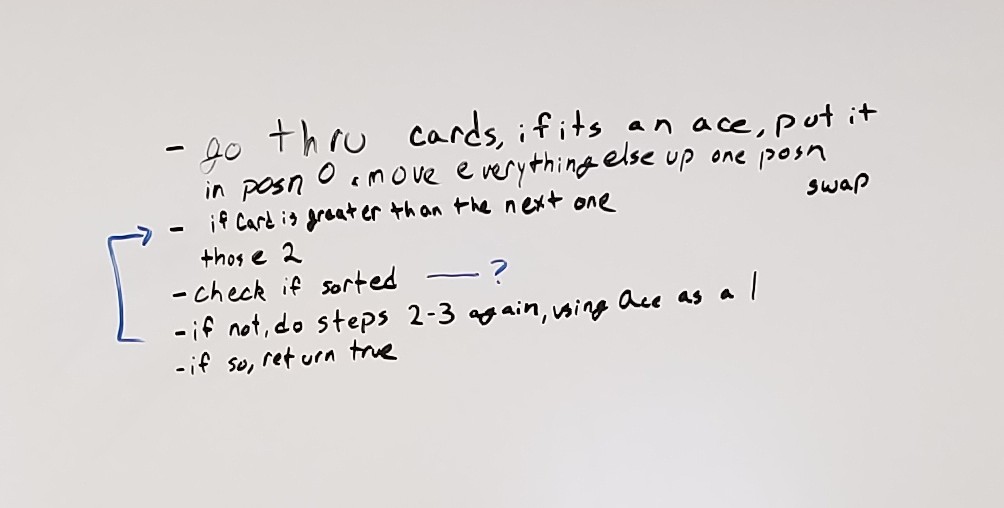 - go thru cards, if its an ace, put it
in posn 0 & move everything else up one posn
- if card is greater than the next one swap
those 2
- check if sorted — ?
- if not, do steps 2-3 again, using ace as a 1
- if so, return true